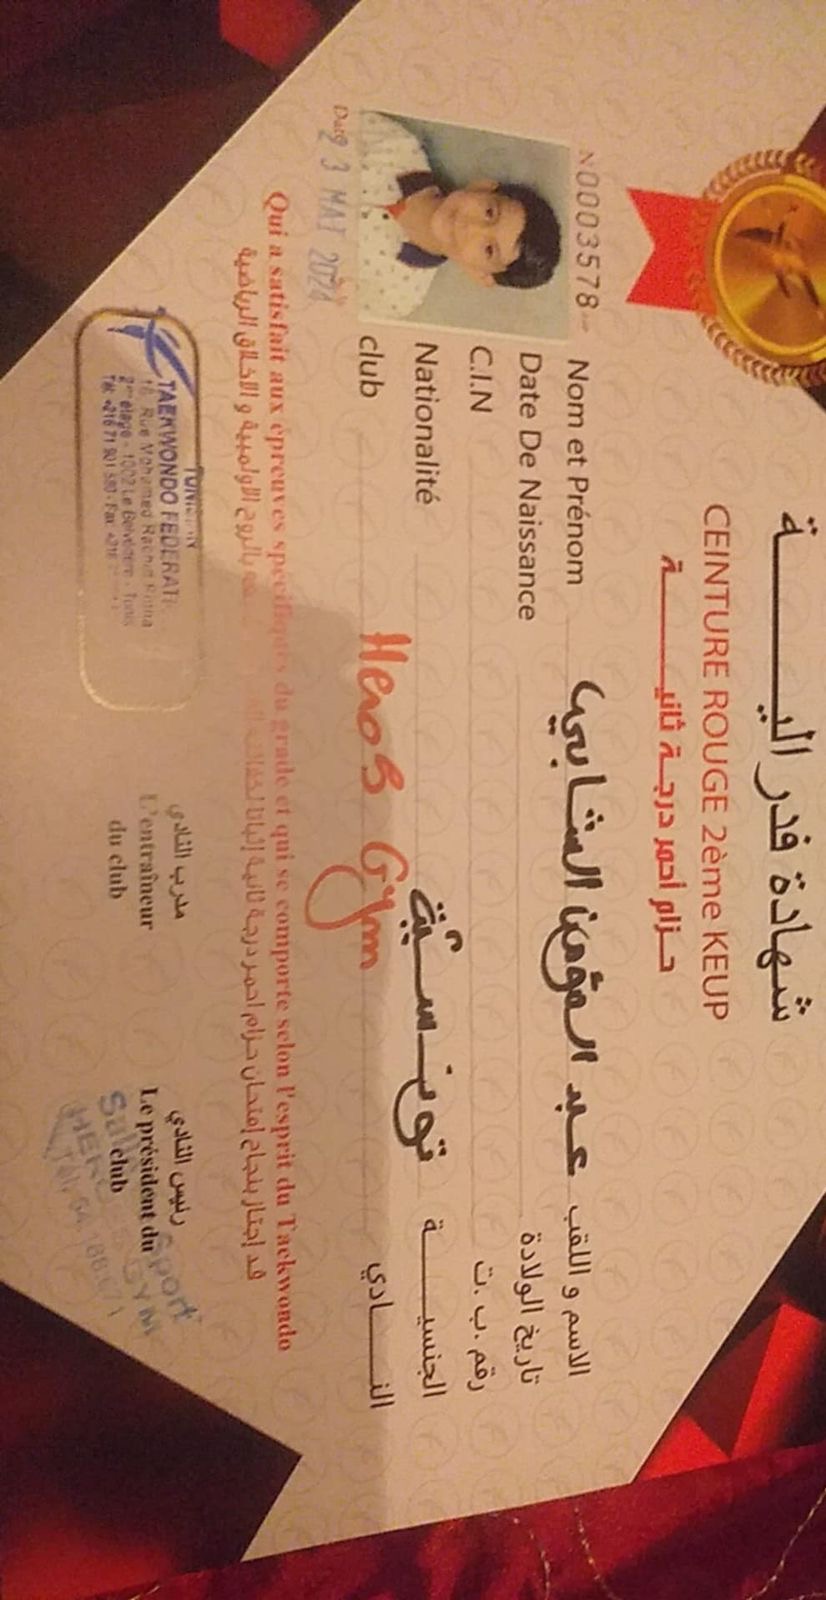 شهادة فدرالية
CEINTURE ROUGE 2ème KEUP
حزام أحمر درجة ثانية
N0003578
Nom et Prénom عبد المؤمن الشابي الاسم و اللقب
Date De Naissance تاريخ الولادة
C.I.N رقم ب. ت.
Nationalité تونسيّة الجنسية
club Heros Gym النادي
Date 23 MAI 2024
Qui a satisfait aux épreuves spécifiques du grade et qui se comporte selon l'esprit du Taekwondo
قد إجتاز بنجاح إمتحان حزام أحمر درجة ثانية بالروح الأولمبية و الأخلاق الرياضية
TAEKWONDO FEDERATI
16, Rue Mohamed
2ème étage - 1002 Le Belvédère - Tunis
مدرب النادي
L'entraîneur
du club
رئيس النادي
Le président du
club
Sport
GYM